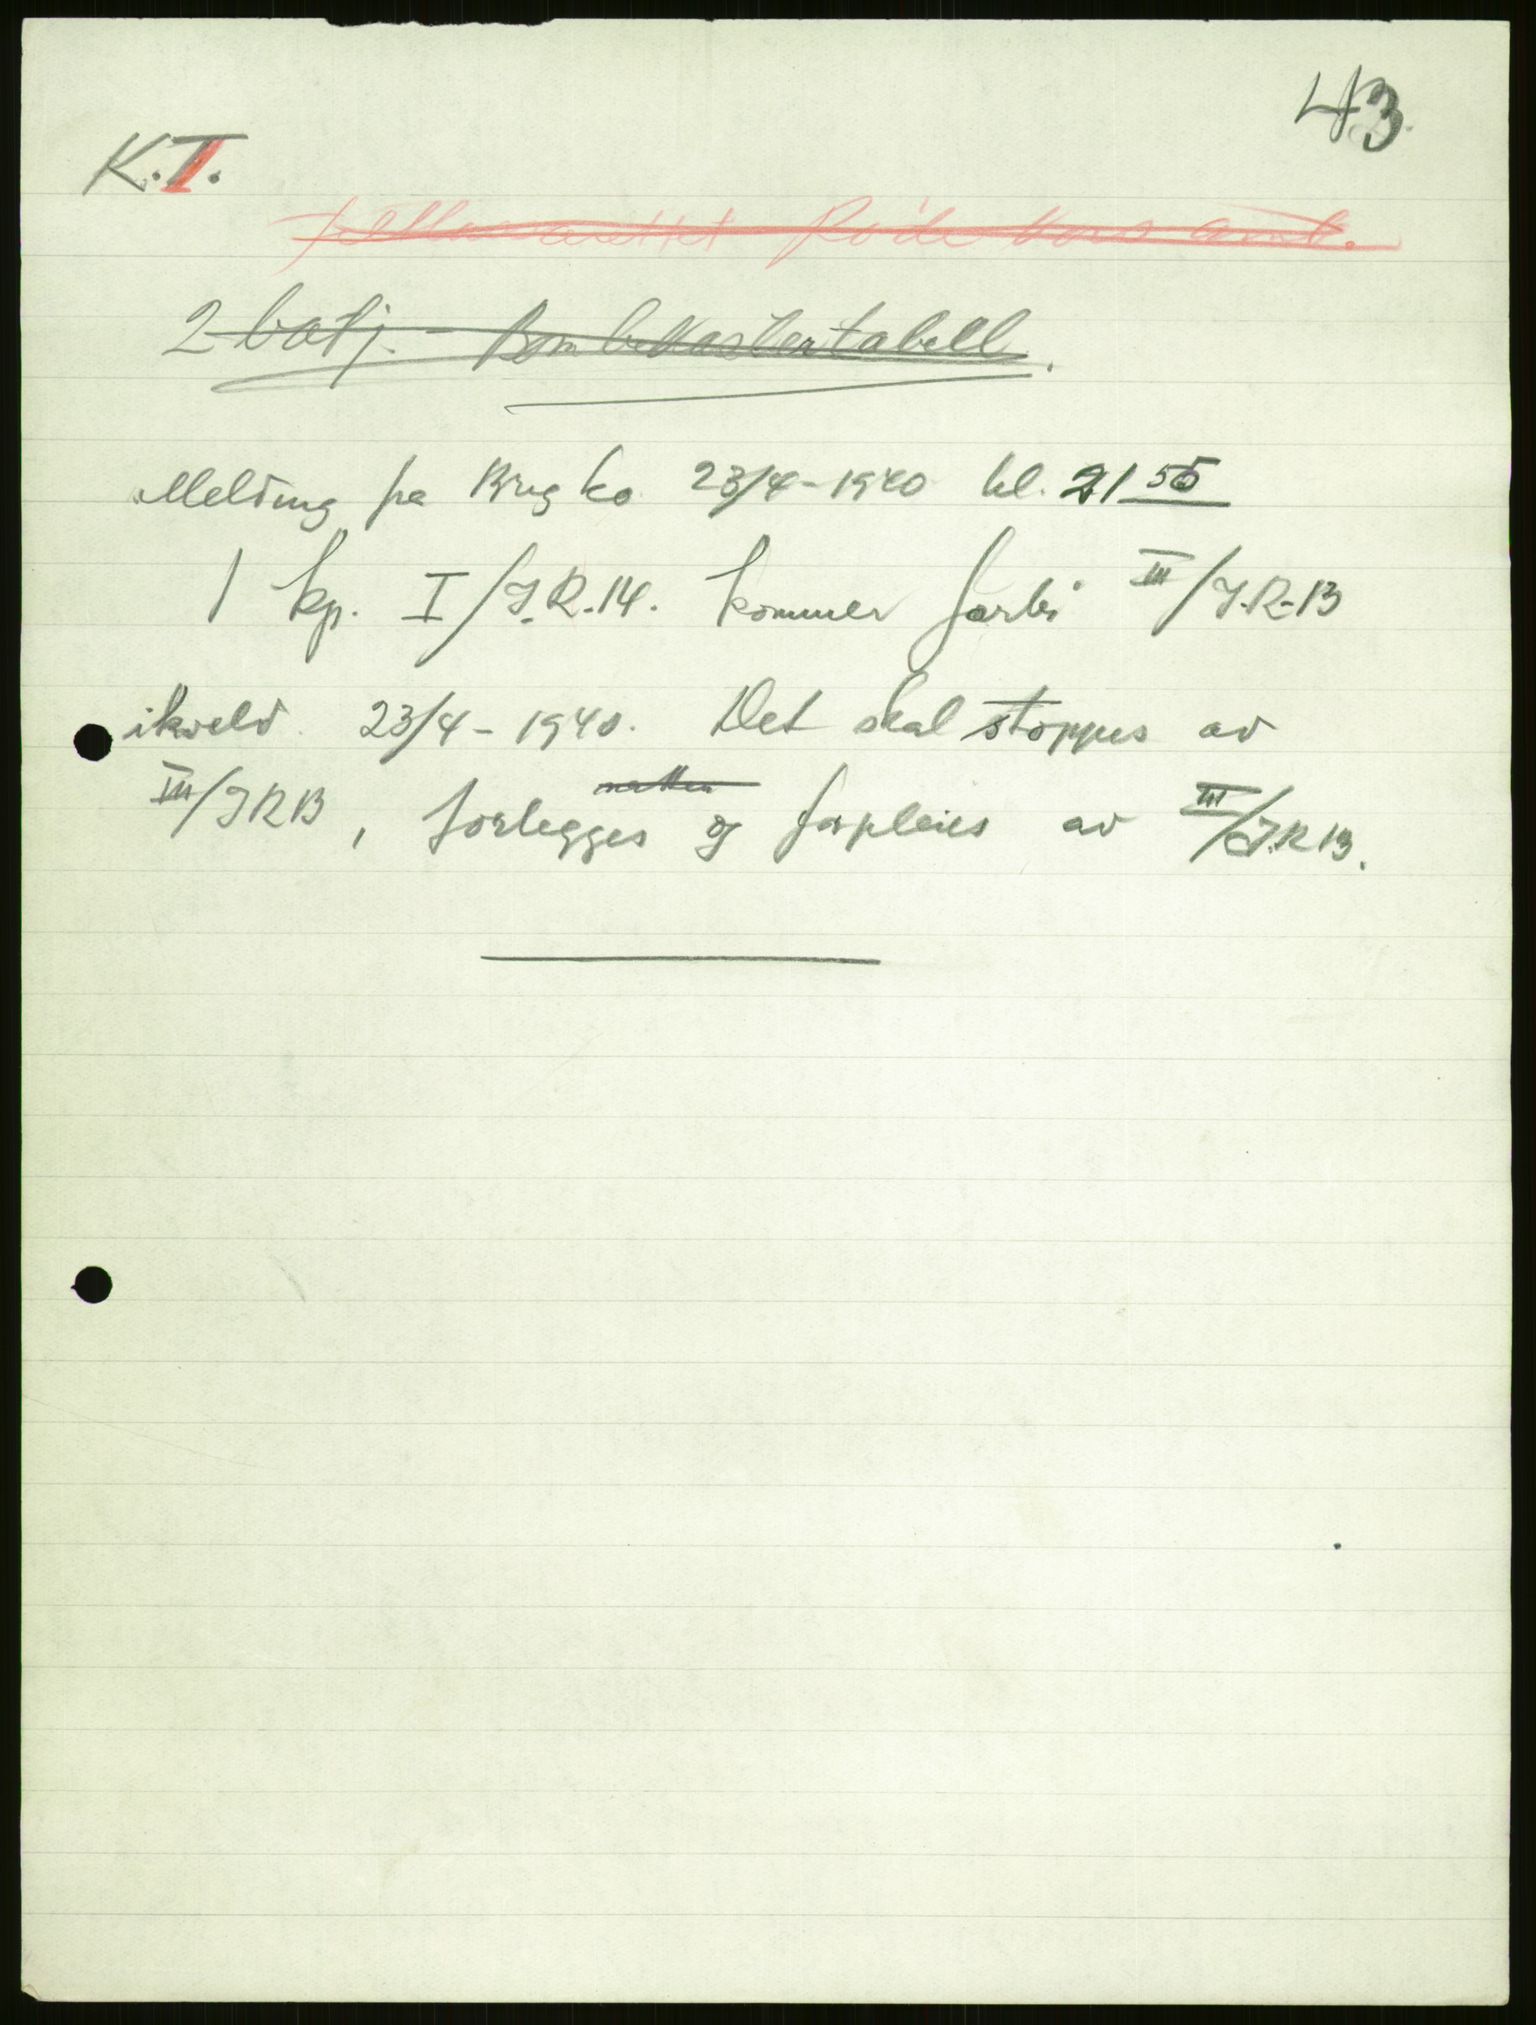 43
K.T.
Røde Kors amb.
2 batj. - Bombekastertabell.
Melding fra Brig ko 23/4-1940 kl. 21 55
1 kp. I/I.R.14. kommer forbi III/I.R-13
ikveld 23/4-1940. Det skal stoppes av
III/IR13, forlegges og forpleies av III/I.R13.
natten